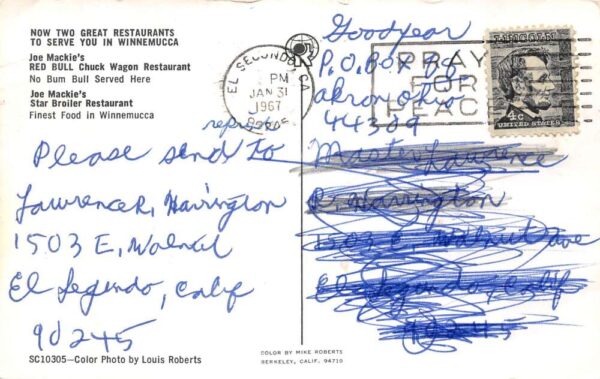 NOW TWO GREAT RESTAURANTS
TO SERVE YOU IN WINNEMUCCA
Joe Mackie's
RED BULL Chuck Wagon Restaurant
No Bum Bull Served Here
Joe Mackie's
Star Broiler Restaurant
Finest Food in Winnemucca
EL SEGUNDO, CA
PM
JAN 31
1967
PRAY
FOR
PEACE
LINCOLN
4c
UNITED STATES
Goodyear
P.O. Box
Akron Ohio
44309
Please send to
Lawrence R. Harrington
1503 E. Walnut
El Segundo, Calif
90245
Master Lawrence
R. Harrington
1503 E. Walnut Ave
El Segundo, Calif
90245
SC10305—Color Photo by Louis Roberts
COLOR BY MIKE ROBERTS
BERKELEY, CALIF. 94710